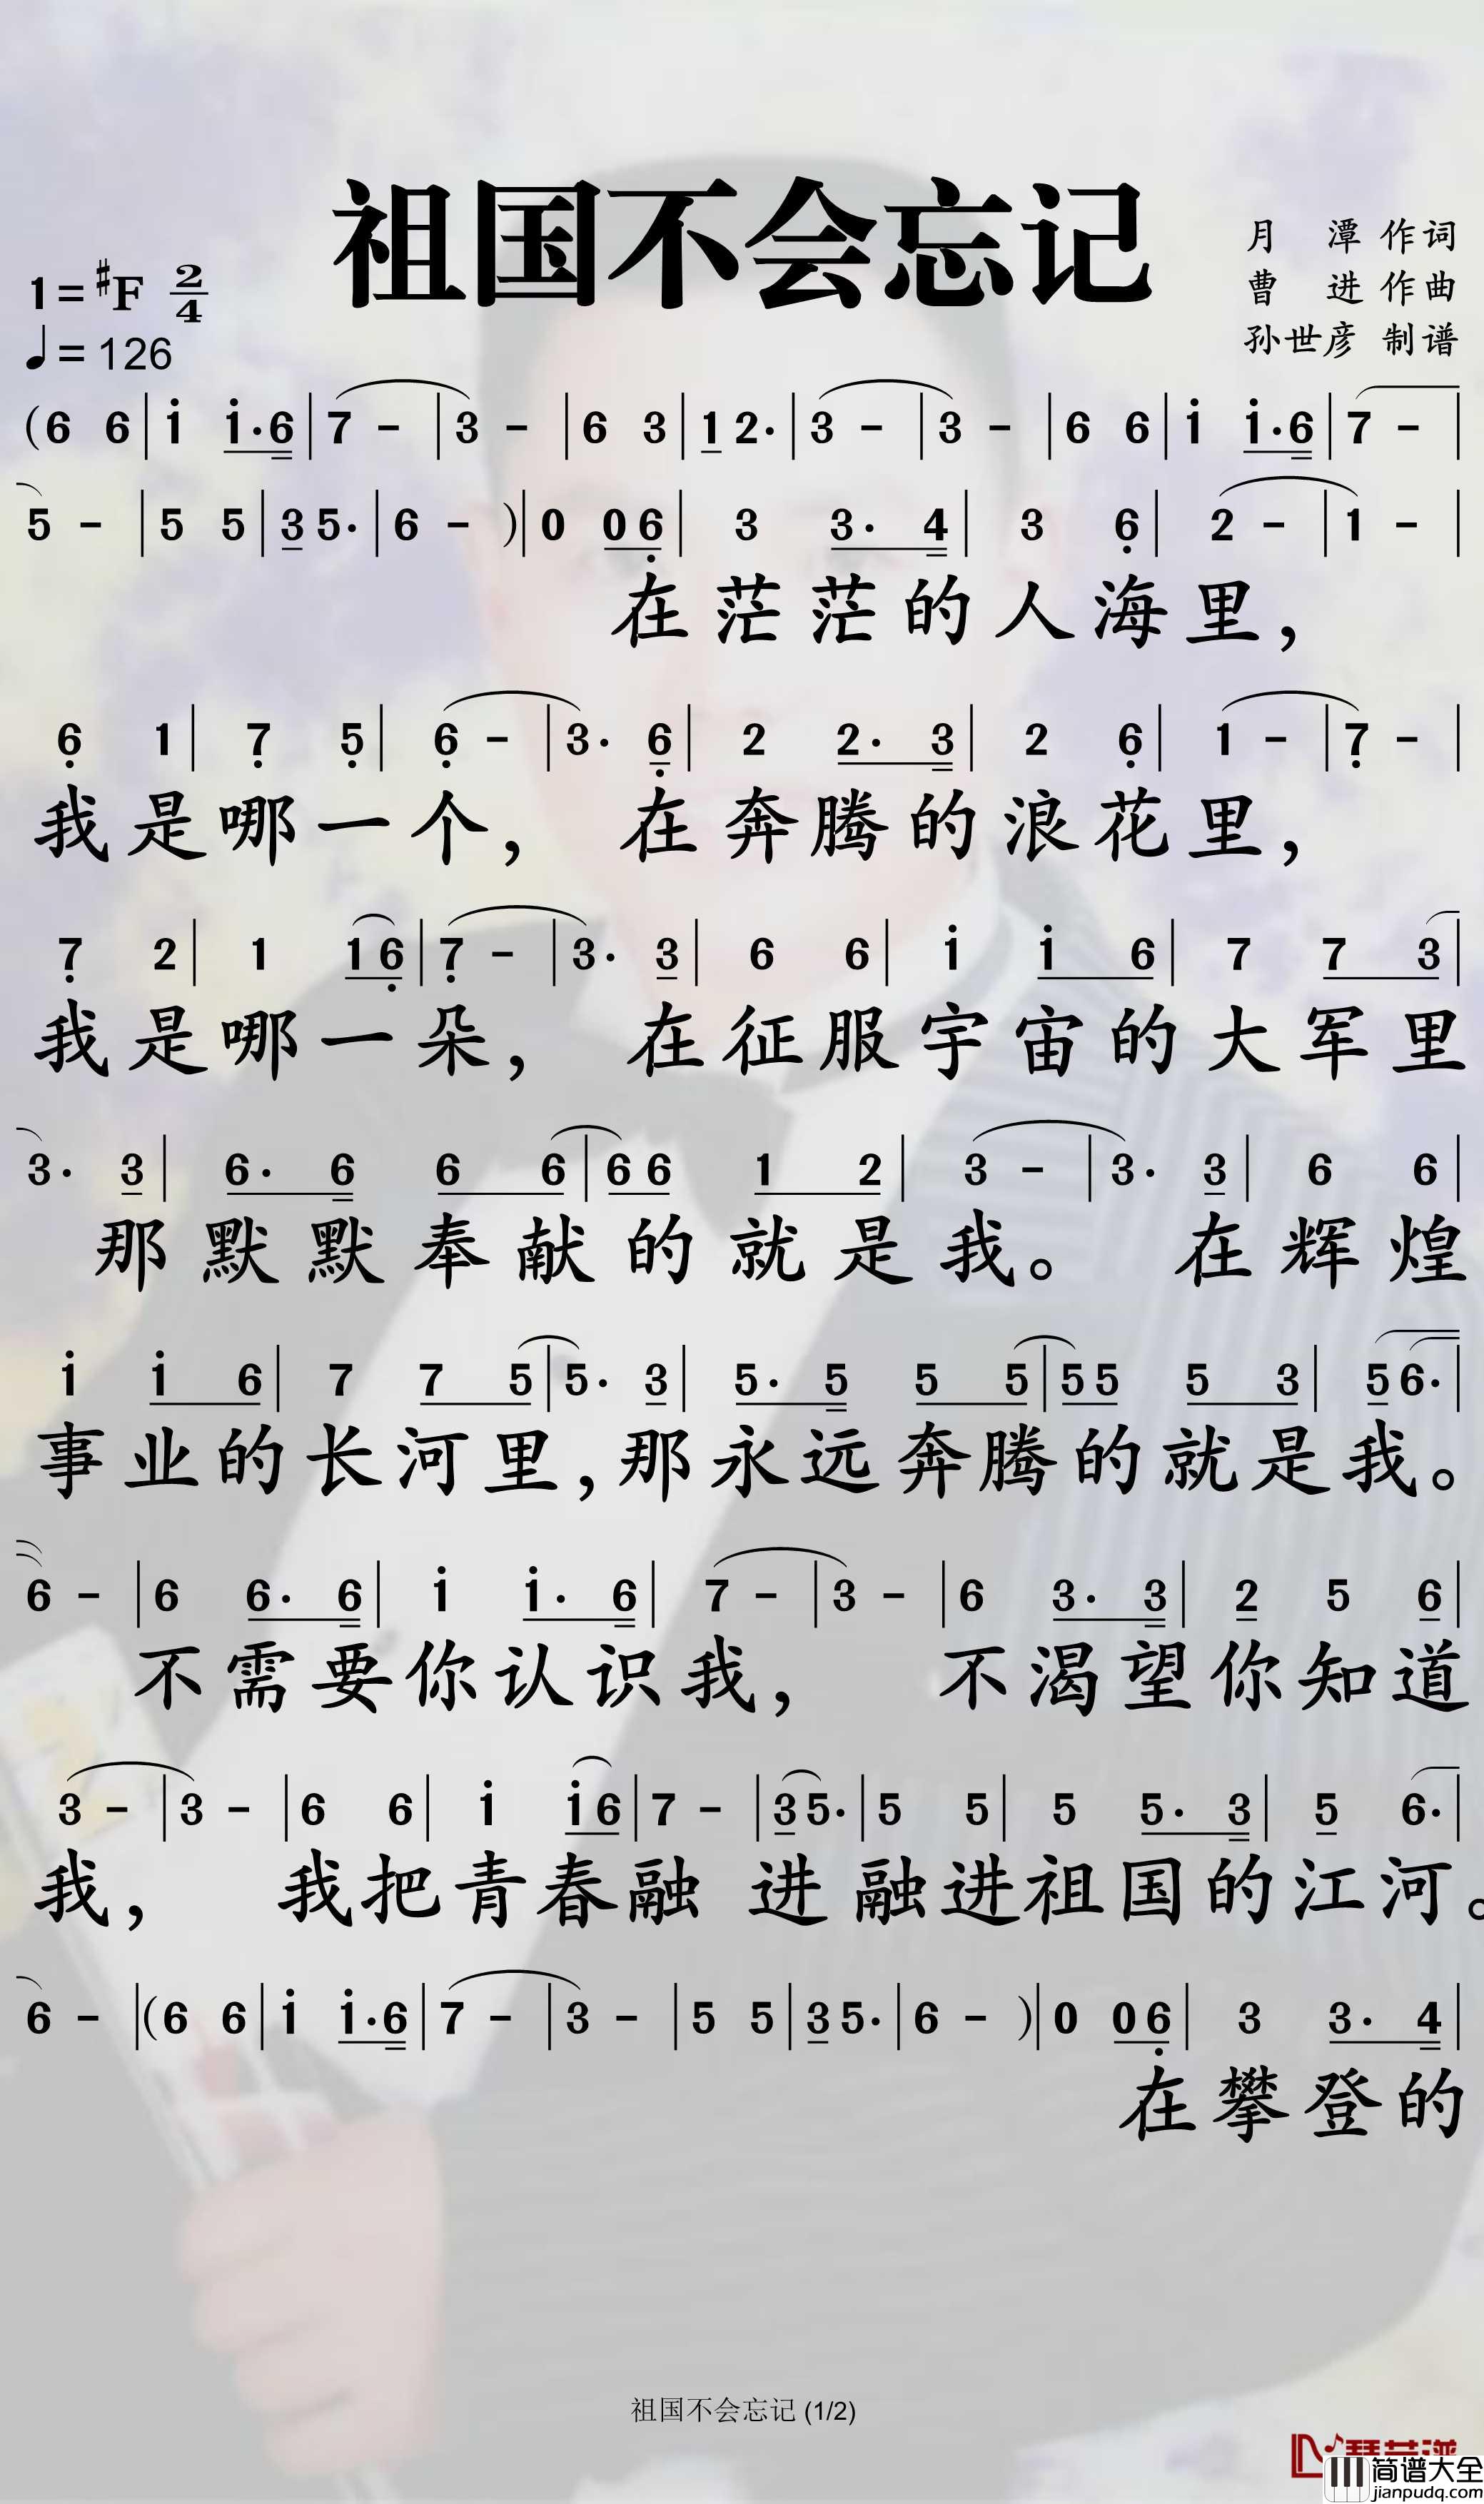 祖国不会忘记
月 潭 作词
曹 进 作曲
孙世彦 制谱
1=♯F 2/4
♩=126
(6 6 | i i·6 | 7 - | 3 - | 6 3 | 1 2· | 3 - | 3 - | 6 6 | i i·6 | 7 - |
5 - | 5 5 | 3 5· | 6 - ) | 0 0 6 | 3 3· 4 | 3 6 | 2 - | 1 - |
在茫茫的人海里，
6 1 | 7 5 | 6 - | 3· 6 | 2 2· 3 | 2 6 | 1 - | 7 - |
我是哪一个， 在奔腾的浪花里，
7 2 | 1 1 6 | 7 - | 3· 3 | 6 6 | i i 6 | 7 7 3 |
我是哪一朵， 在征服宇宙的大军里
3· 3 | 6· 6 6 6 | 6 6 1 2 | 3 - | 3· 3 | 6 6 |
那默默奉献的就是我。 在辉煌
i i 6 | 7 7 5 | 5· 3 | 5· 5 5 5 | 5 5 5 3 | 5 6· |
事业的长河里，那永远奔腾的就是我。
6 - | 6 6· 6 | i i· 6 | 7 - | 3 - | 6 3· 3 | 2 5 6 |
不需要你认识我， 不渴望你知道
3 - | 3 - | 6 6 | i i 6 | 7 - | 3 5· | 5 5 | 5 5· 3 | 5 6· |
我， 我把青春融 进融进祖国的江河。
6 - | (6 6 | i i·6 | 7 - | 3 - | 5 5 | 3 5· | 6 - ) | 0 0 6 | 3 3· 4 |
在攀登的
祖国不会忘记 (1/2)
简谱大全
jianpudq.com